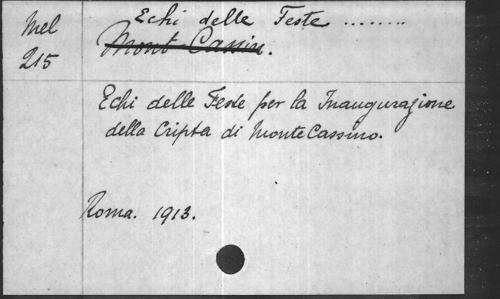 Mel
215
Echi delle Feste ........
Mont-Cassin.
Echi delle Feste per la Inaugurazione
della Cripta di Monte Cassino.
Roma. 1913.